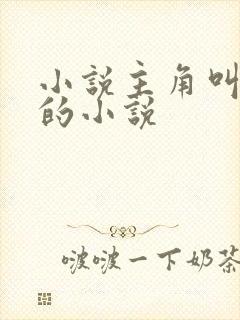 小説主角叫
的小説
啵啵一下奶茶